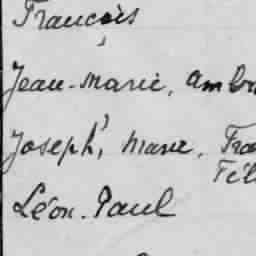 François
Jean-Marie, Amb
Joseph, Marie, Fra
Fél
Léon-Paul